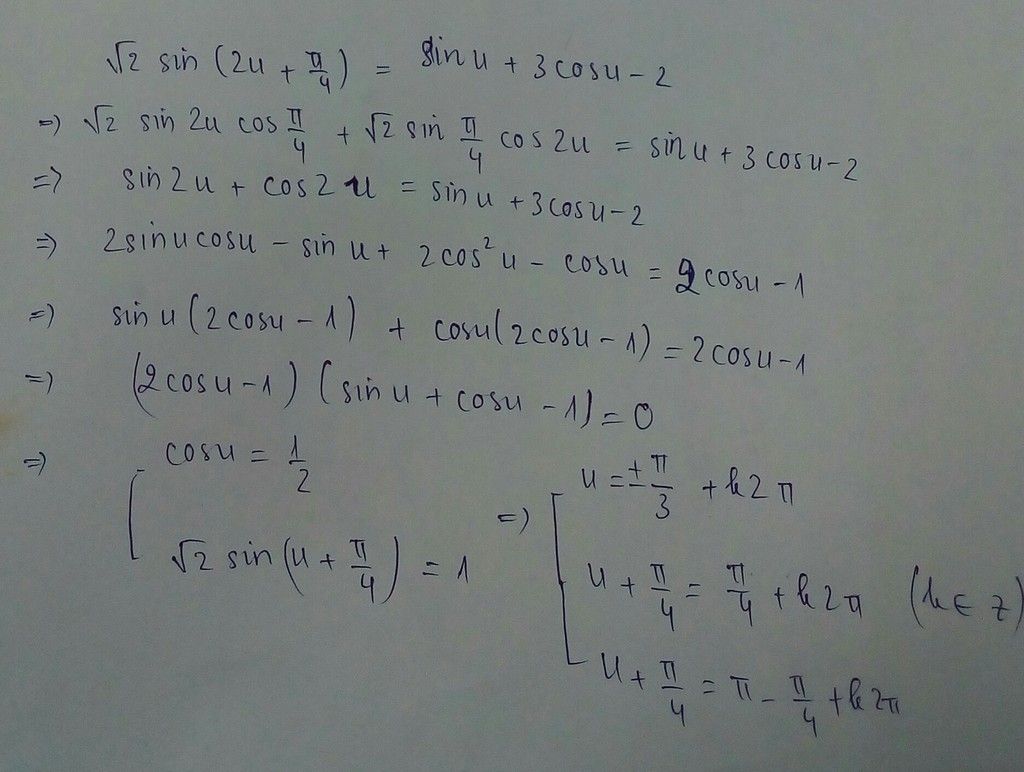 √2 sin (2u + π/4) = sin u + 3cosu - 2
=> √2 sin 2u cos π/4 + √2 sin π/4 cos 2u = sin u + 3 cosu - 2
=> sin 2u + cos 2u = sin u + 3cosu - 2
=> 2sinucosu - sin u + 2cos²u - cosu = 2cosu - 1
=> sin u (2cosu - 1) + cosu(2cosu - 1) = 2cosu - 1
=> (2cosu - 1) (sin u + cosu - 1) = 0
=> [ cosu = 1/2
√2 sin (u + π/4) = 1
=> [ u = ± π/3 + k2π
u + π/4 = π/4 + k2π (k ∈ z)
u + π/4 = π - π/4 + k2π